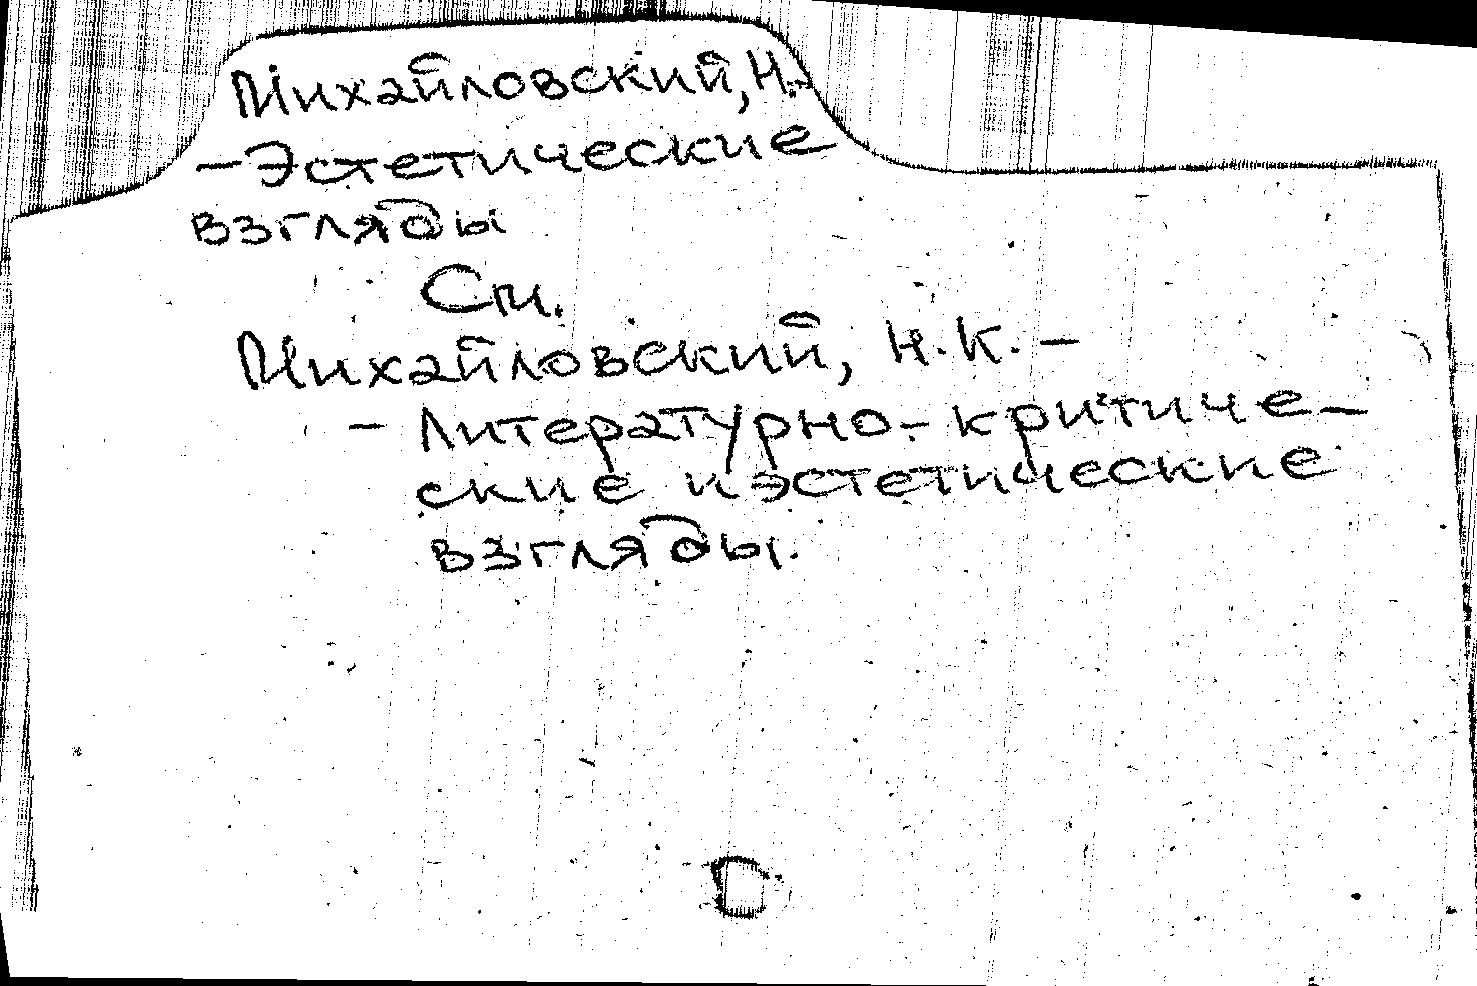 Михайловский, Н.-
-Эстетические
взгляды
См.
Михайловский, Н.К. -
- Литературно-критиче-
ские и эстетические
взгляды.